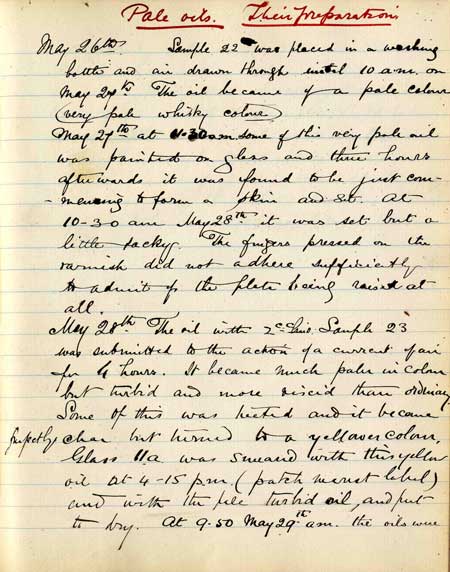 Pale oils. Their preparation
May 26th Sample 22 was placed in a washing
bottle and air drawn through until 10 a.m. on
May 27th. The oil became of a pale colour
(very pale whisky colour)
May 27th at 11-30 am some of this very pale oil
was painted on glass and three hours
afterwards it was found to be just com-
-mencing to form a skin and set. At
10-30 am May 28th it was set but a
little tacky. The fingers pressed on the
varnish did not adhere sufficiently
to admit of the plate being raised at
all.
May 28th The oil with Sample 23
was submitted to the action of a current of air
for 4 hours. It became much paler in colour
but turbid and more viscid than ordinary
Some of this was heated and it became
perfectly clear but turned to a yellower colour.
Glass 11a was smeared with this yellow
oil at 4-15 pm (patch nearest label)
and with the pale turbid oil, and put
to dry. At 9.50 May 29th am. the oils were